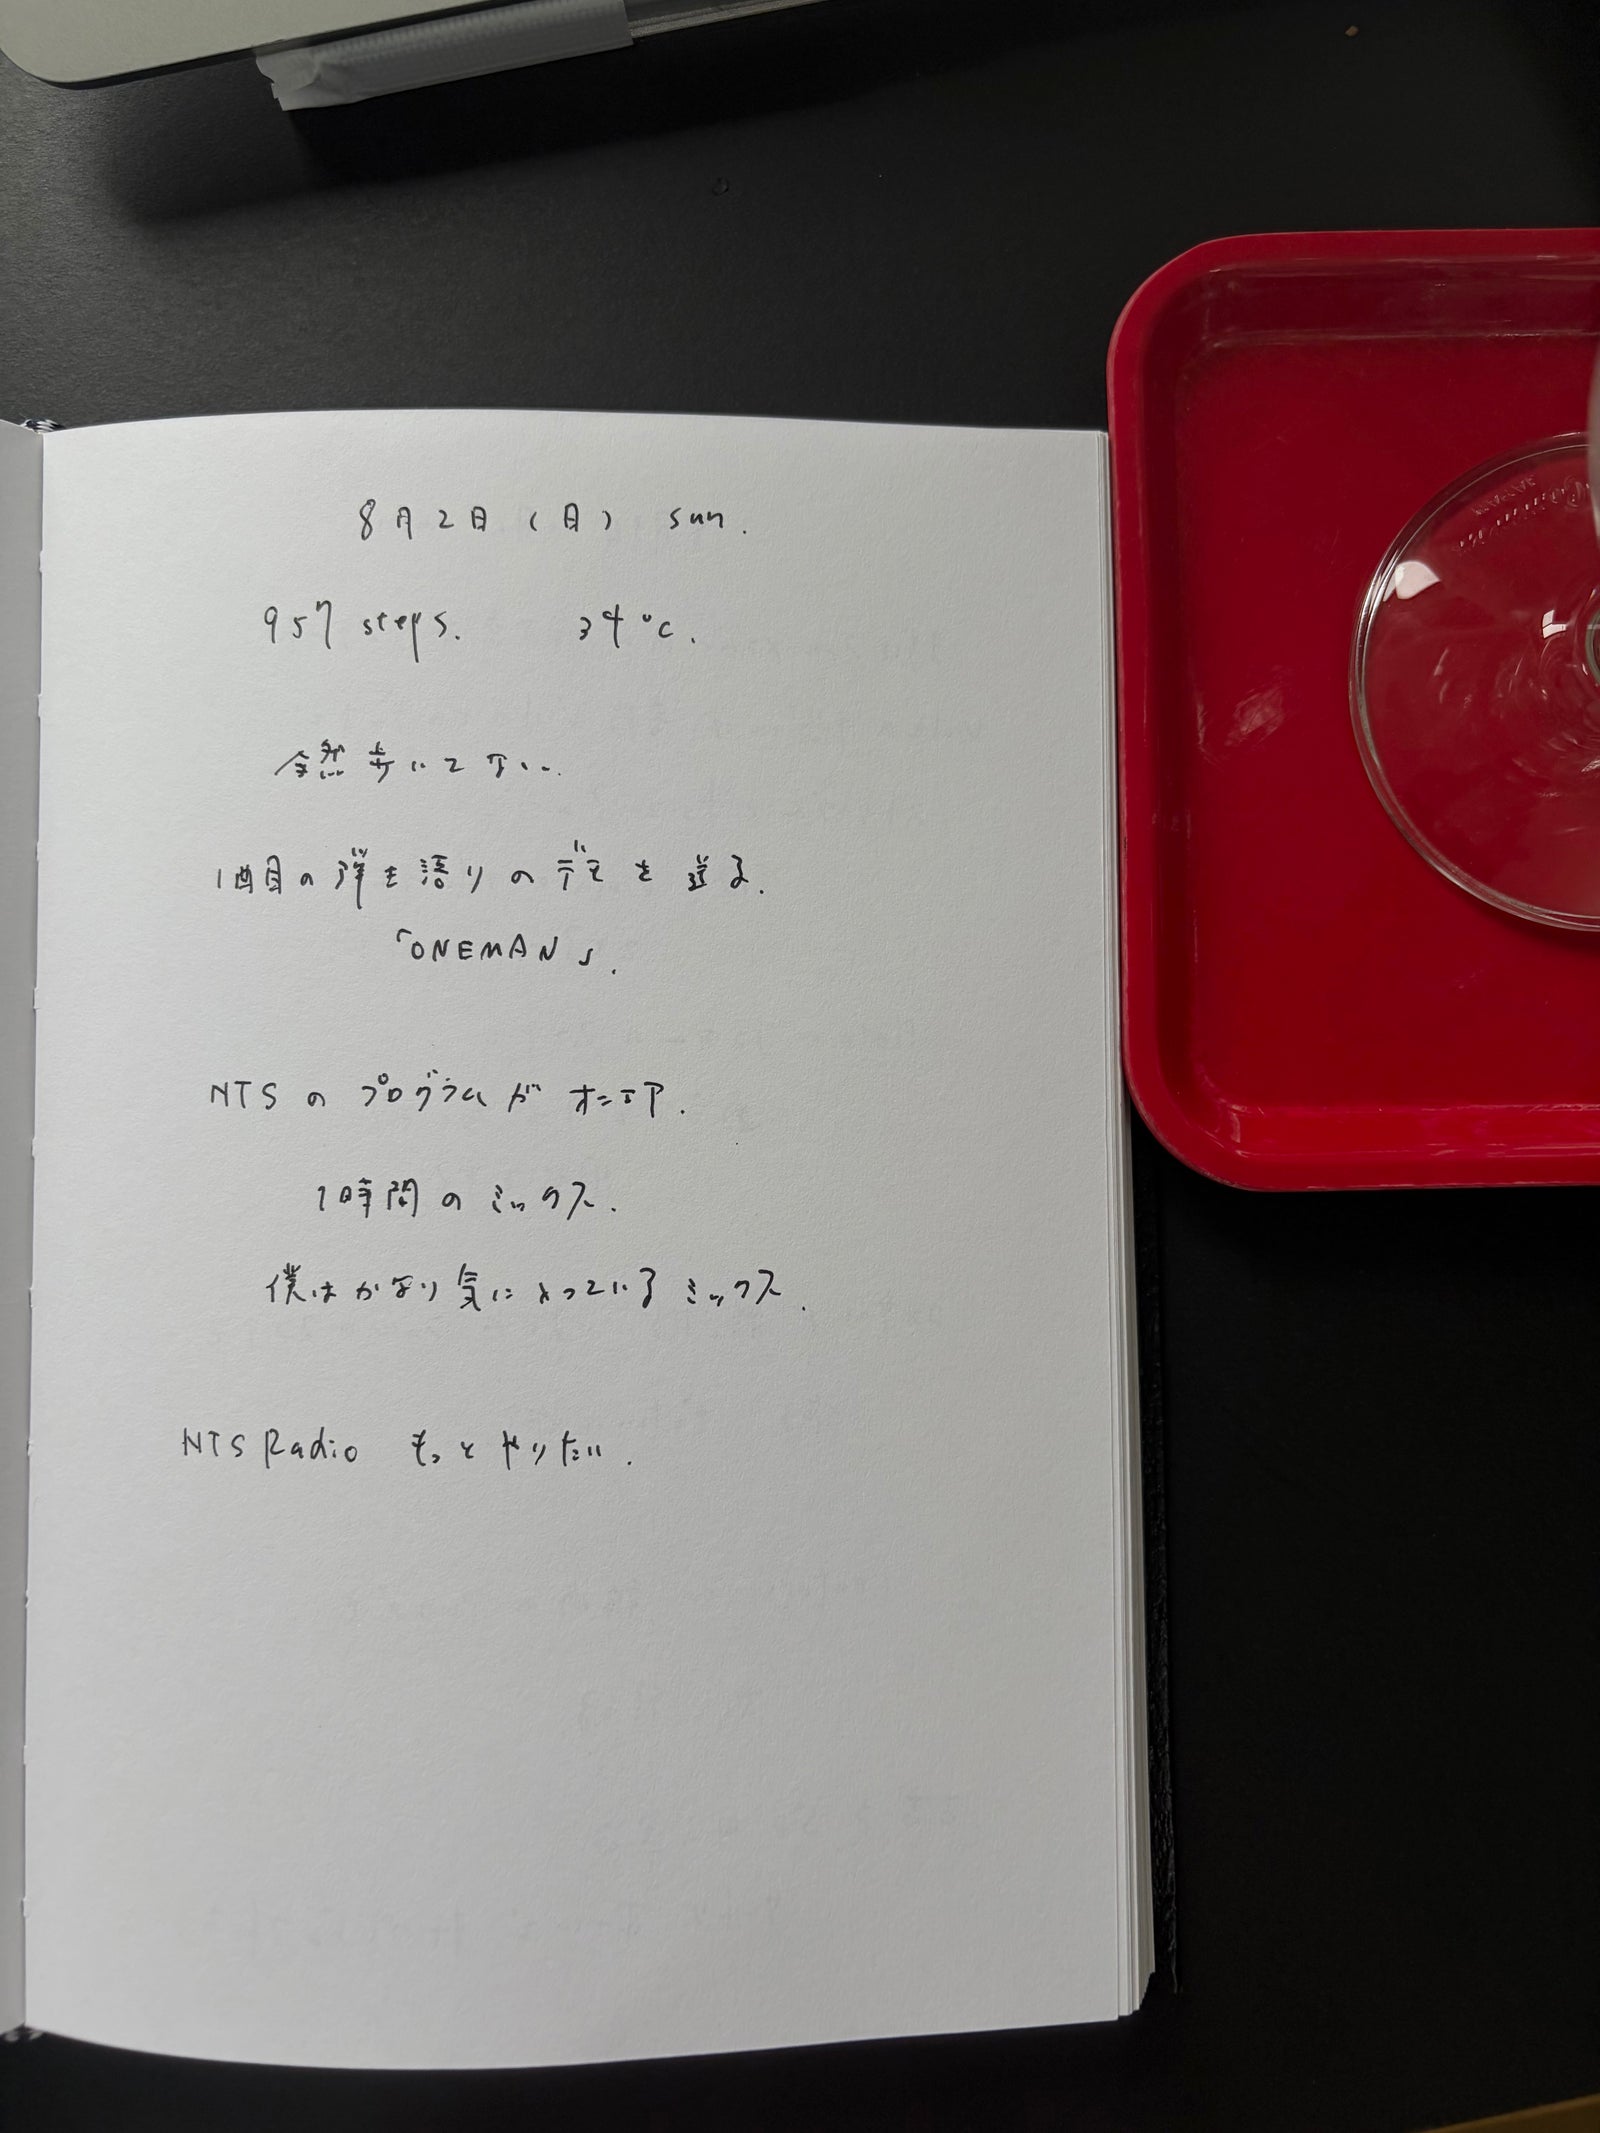 8月2日（日） sun.
957 steps. 34℃.
全然歩いてない.
1曲目の弾き語りのデモを送る.
「ONEMAN」.
NTSのプログラムがオンエア.
1時間のミックス.
僕はかなり気に入っているミックス.
NTS Radio もっとやりたい.